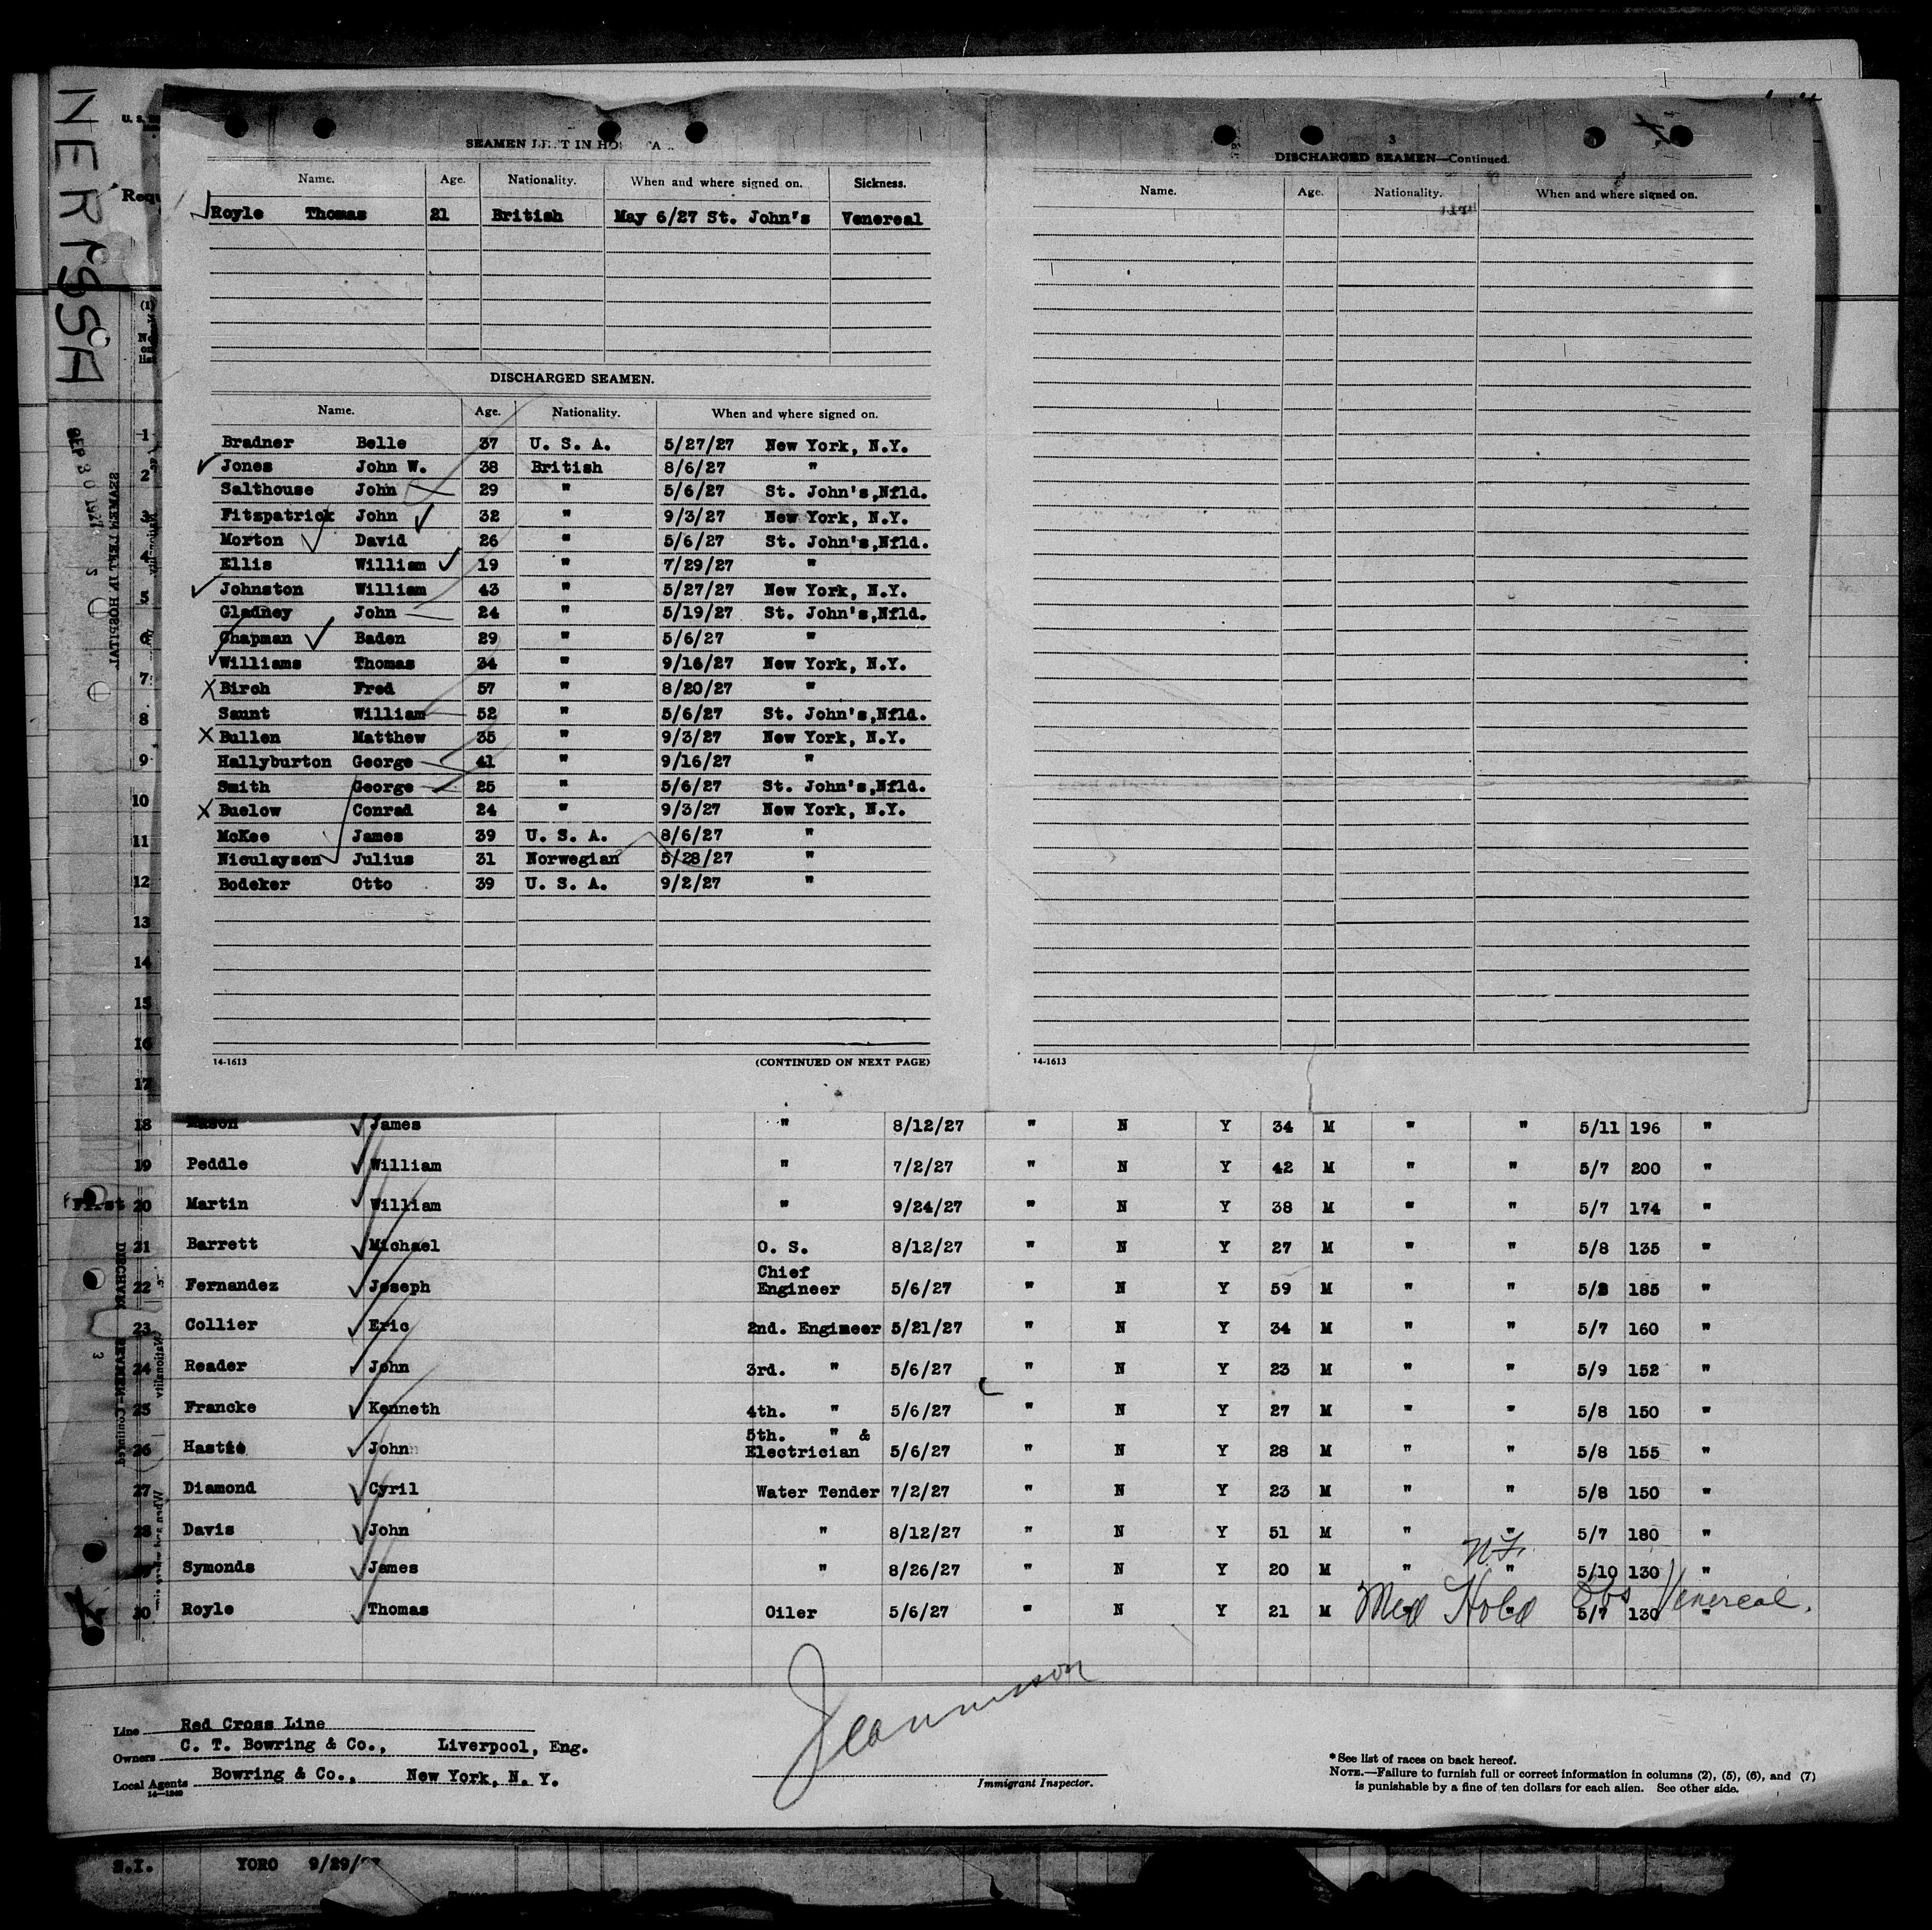 NERISSA
SEAMEN LEFT IN HOSPITAL
Name. Age. Nationality. When and where signed on. Sickness.
Royle Thomas 21 British May 6/27 St. John's Venereal
DISCHARGED SEAMEN.
Name. Age. Nationality. When and where signed on.
Bradner Belle 37 U. S. A. 5/27/27 New York, N.Y.
Jones John W. 38 British 8/6/27 "
Salthouse John 29 " 5/6/27 St. John's,Nfld.
Fitzpatrick John 32 " 9/3/27 New York, N.Y.
Morton David 26 " 5/6/27 St. John's,Nfld.
Ellis William 19 " 7/29/27 "
Johnston William 43 " 5/27/27 New York, N.Y.
Gladney John 24 " 5/19/27 St. John's,Nfld.
Chapman Baden 29 " 5/6/27 "
Williams Thomas 34 " 9/16/27 New York, N.Y.
Birch Fred 57 " 8/20/27 "
Saunt William 52 " 5/6/27 St. John's,Nfld.
Bullen Matthew 35 " 9/3/27 New York, N.Y.
Hallyburton George 41 " 9/16/27 "
Smith George 25 " 5/6/27 St. John's,Nfld.
Buelow Conrad 24 " 9/3/27 New York, N.Y.
McKee James 39 U. S. A. 8/6/27 "
Niculaysen Julius 31 Norwegian 5/28/27 "
Bodeker Otto 39 U. S. A. 9/2/27 "
14-1613 (CONTINUED ON NEXT PAGE)
3
DISCHARGED SEAMEN—Continued.
Name. Age. Nationality. When and where signed on.
14-1613
U. S.
Requ
(1)
No.
on
list
1
2
3
4
5
6
7
8
9
10
11
12
13
14
15
16
17
18 Mason James " 8/12/27 " N Y 34 M " " 5/11 196 "
19 Peddle William " 7/2/27 " N Y 42 M " " 5/7 200 "
First 20 Martin William " 9/24/27 " N Y 38 M " " 5/7 174 "
21 Barrett Michael O. S. 8/12/27 " N Y 27 M " " 5/8 135 "
22 Fernandez Joseph Chief Engineer 5/6/27 " N Y 59 M " " 5/8 185 "
23 Collier Eric 2nd. Engineer 5/21/27 " N Y 34 M " " 5/7 160 "
24 Reader John 3rd. " 5/6/27 " N Y 23 M " " 5/9 152 "
25 Francke Kenneth 4th. " 5/6/27 " N Y 27 M " " 5/8 150 "
26 Hastie John 5th. " & Electrician 5/6/27 " N Y 28 M " " 5/8 155 "
27 Diamond Cyril Water Tender 7/2/27 " N Y 23 M " " 5/8 150 "
28 Davis John " 8/12/27 " N Y 51 M " " 5/7 180 "
29 Symonds James " 8/26/27 " N Y 20 M " " N.F. 5/10 130 "
30 Royle Thomas Oiler 5/6/27 " N Y 21 M " " 5/7 130 "
Med Hold Obs Venereal.
Line Red Cross Line
Owners C. T. Bowring & Co., Liverpool, Eng.
Local Agents Bowring & Co., New York, N. Y.
14—1240
Immigrant Inspector.
*See list of races on back hereof.
NOTE.—Failure to furnish full or correct information in columns (2), (5), (6), and (7)
is punishable by a fine of ten dollars for each alien. See other side.
S.I. YORO 9/29/27